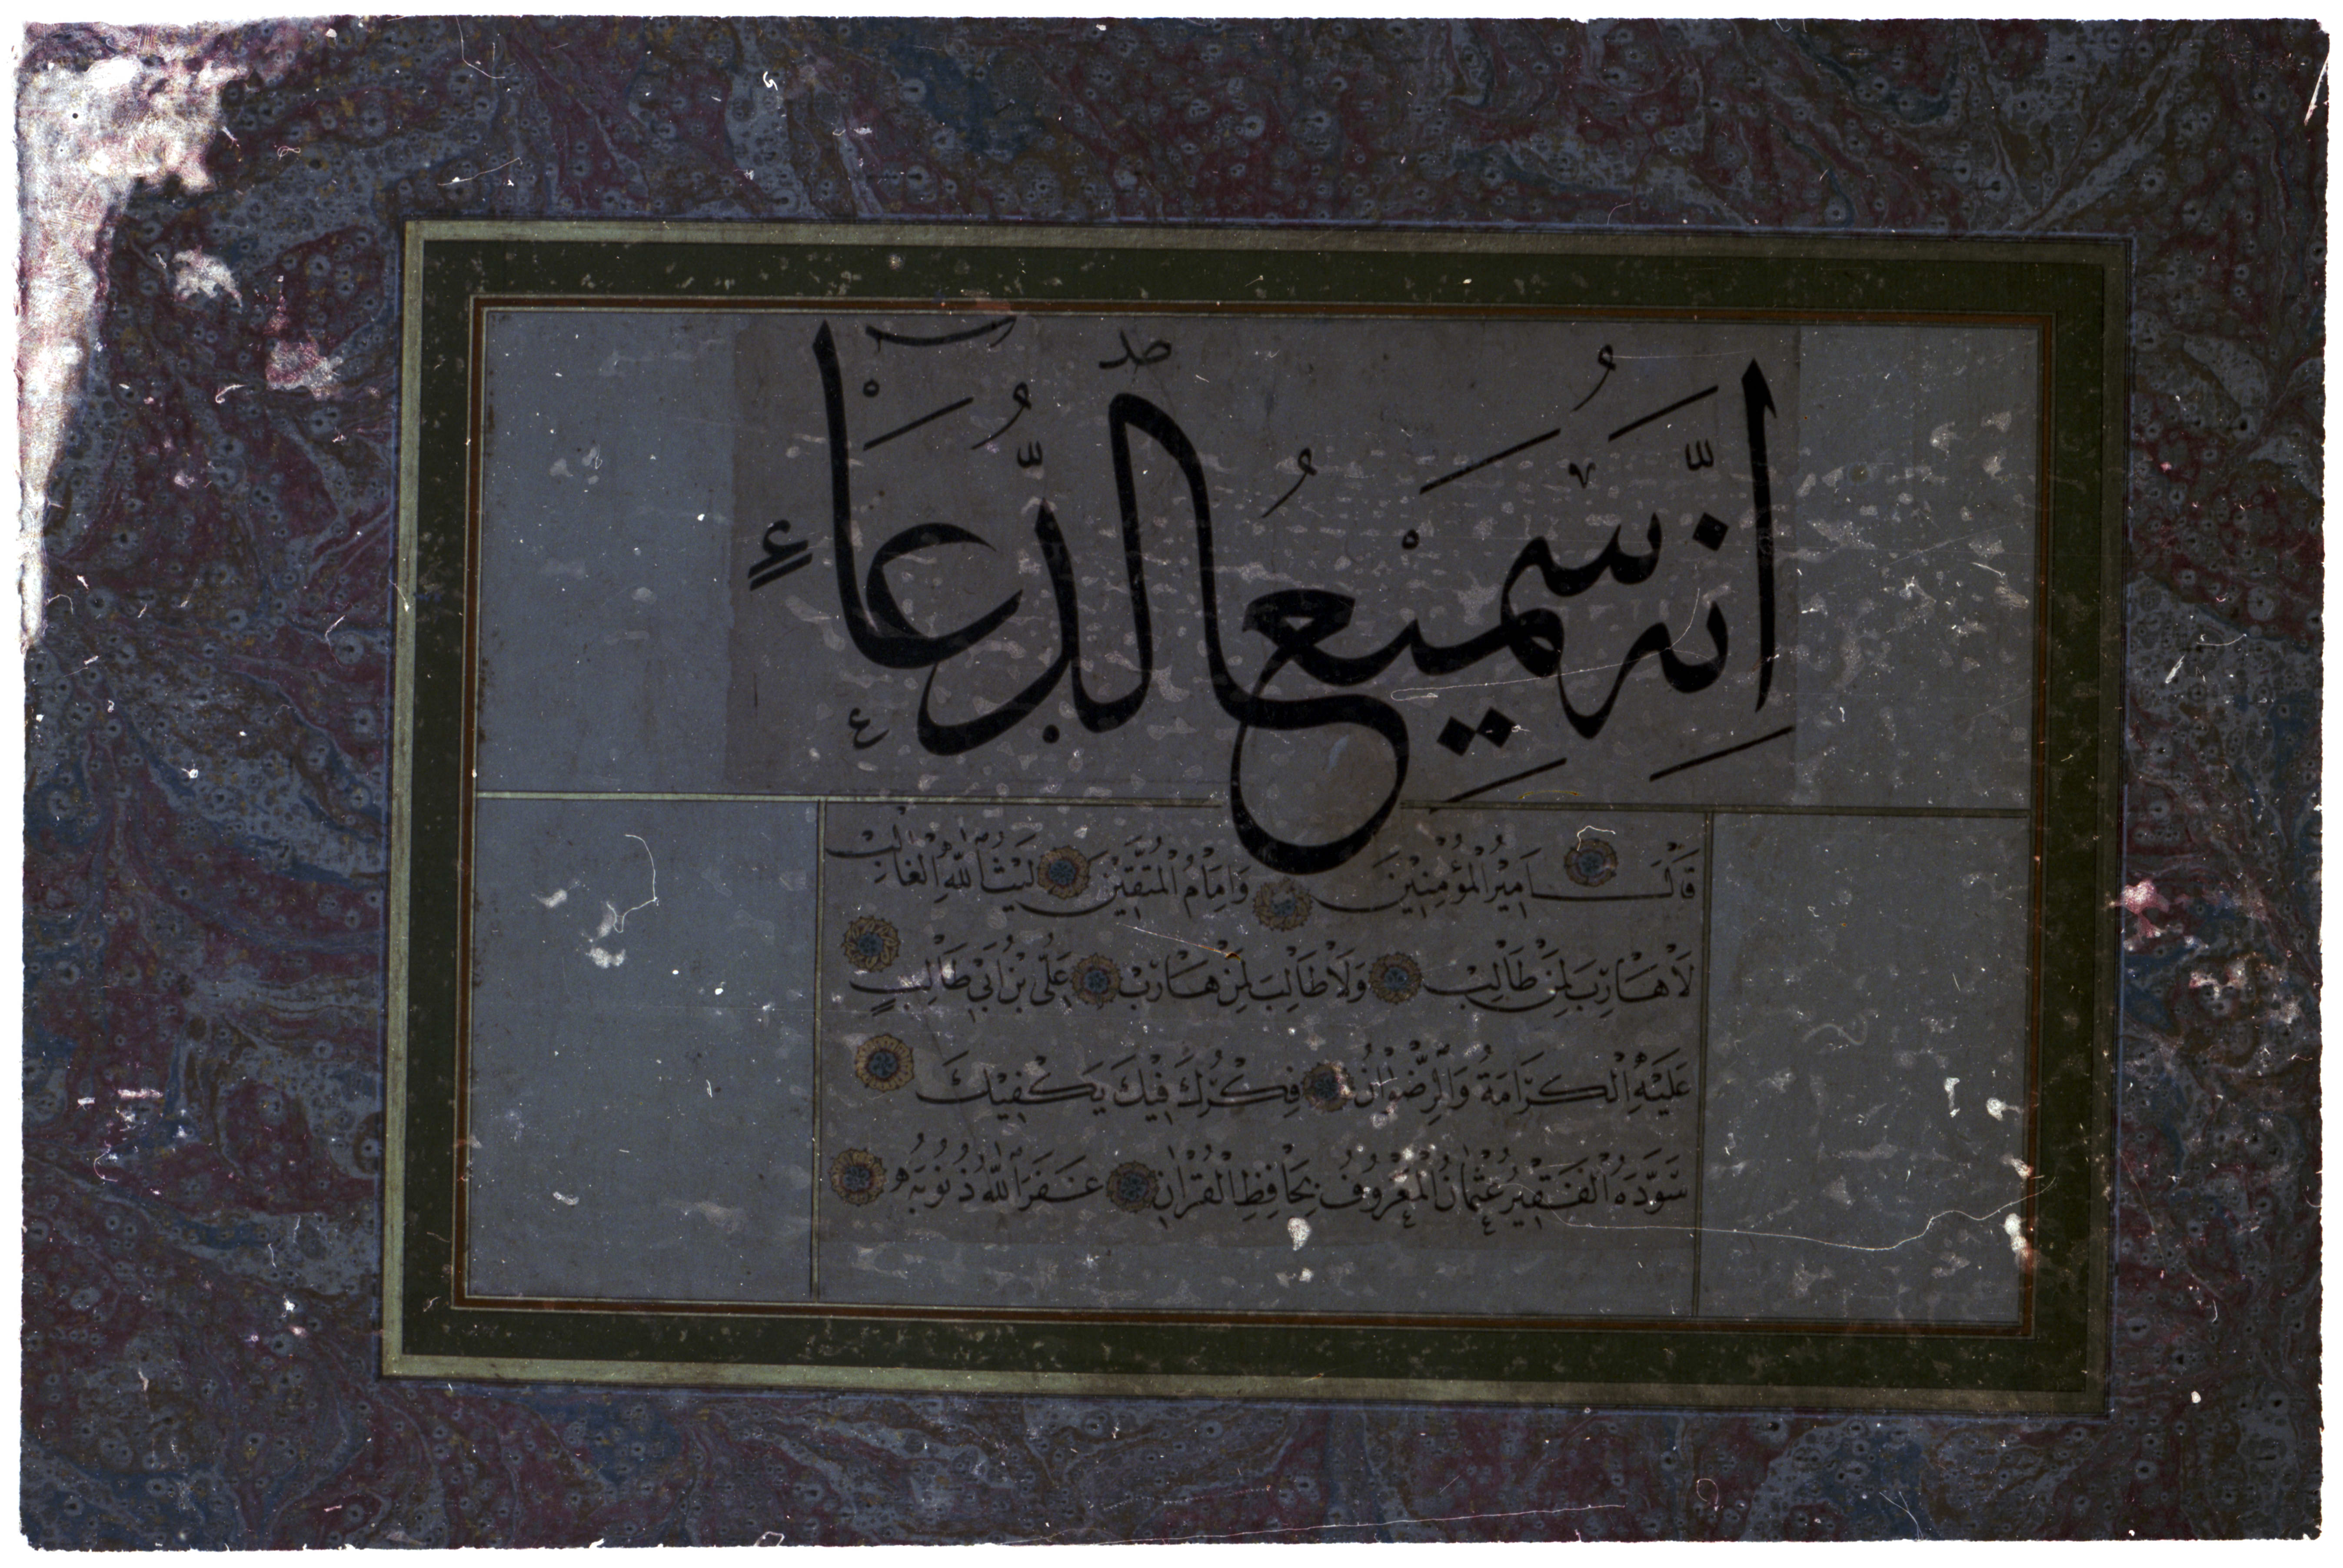 اِنَّهُ سَمِيْعُ الدُّعَاۤءِ
قَالَ اَمِيْرُ الْمُؤْمِنِيْنَ وَاِمَامُ الْمُتَّقِيْنَ لَيْثُ اللّٰهِ الْغَالِبْ
لَا هَارِبَ لِمَنْ طَالِبْ وَلَا طَالِبَ لِمَنْ هَارِبْ عَلِىُّ بْنُ اَبِى طَالِبٍ
عَلَيْهِ الْكَرَامَةُ وَالرِّضْوَانُ فِكْرُكَ فِيْكَ يَكْفِيْكَ
سَوَّدَهُ الْفَقِيْرُ عُثْمَانُ الْمَعْرُوفُ بِحَافِظِ الْقُرْاٰنِ غَفَرَ اللّٰهُ ذُنُوبَهُ